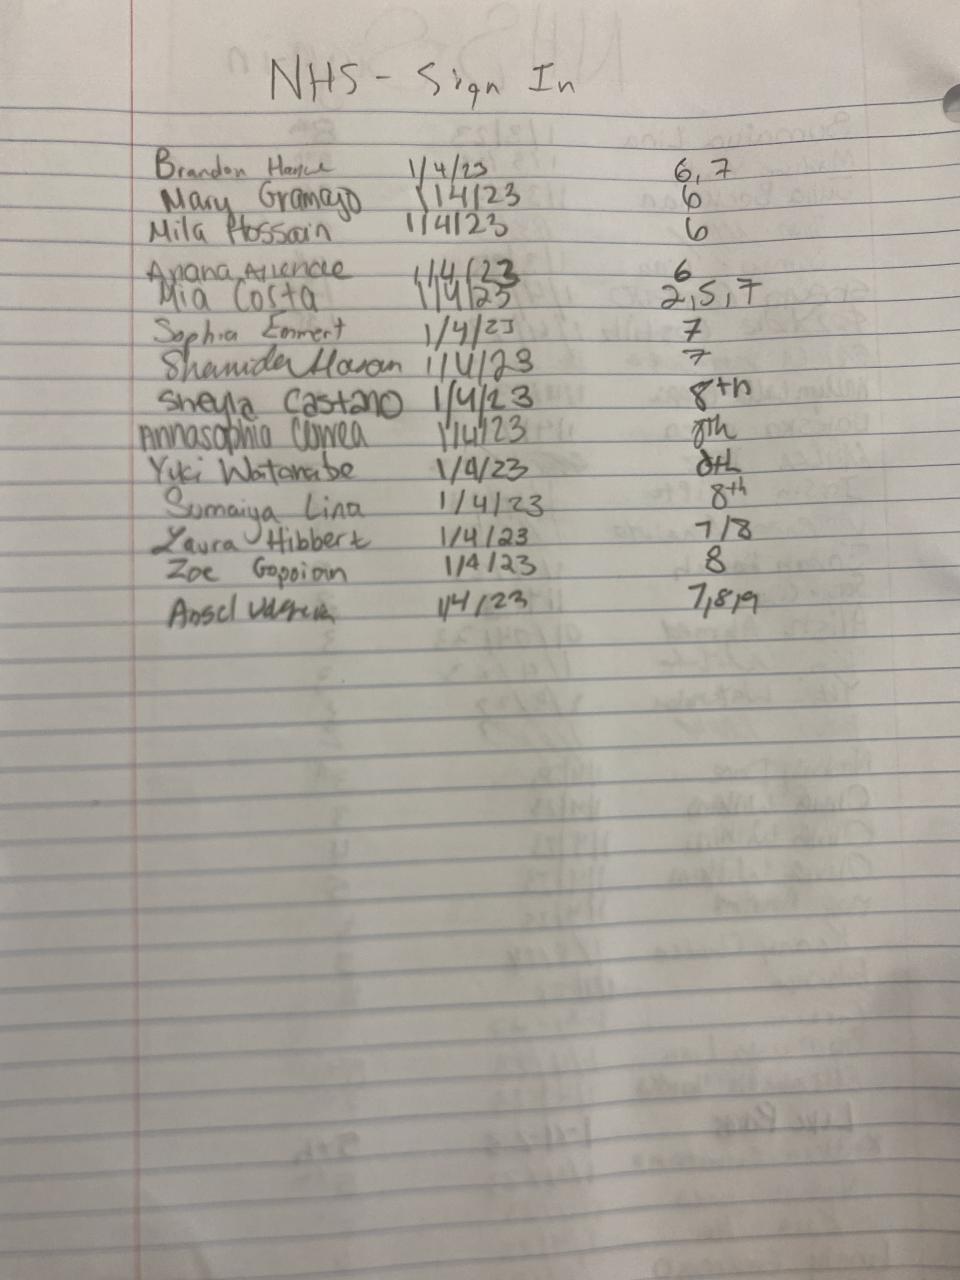 NHS - Sign In
Brandon 1/4/23 6,7
Mary Gramajo 1/4/23 6
Mila Hossain 1/4/23 6
1/4/23 6
Mia Costa 1/4/23 2,5,7
Sophia Emmert 1/4/23 7
Shamida Hasan 1/4/23 7
Sheyla Castano 1/4/23 8th
Annasophia Correa 1/4/23 8th
Yuki Watanabe 1/4/23 8th
Sumaiya Lina 1/4/23 8th
Laura Hibbert 1/4/23 7/8
Zoe Gopoian 1/4/23 8
Ansel 1/4/23 7,8,9